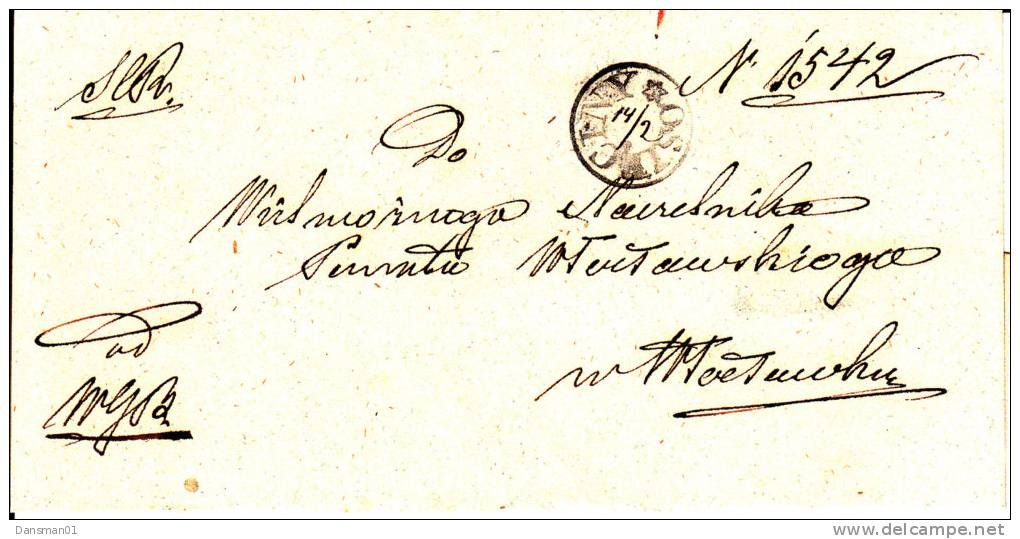 N 1542
OSIĘCINY
14/2
Do
Wielmożnego Naczelnika
Powiatu Włocławskiego
w Włocławku
od
Dansman01
www.delcampe.net